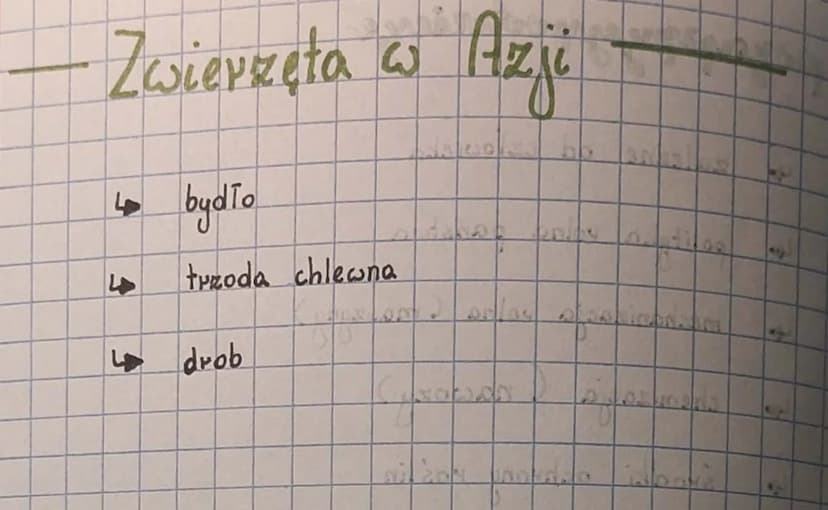 Zwierzęta w Azji
↳ bydło
↳ trzoda chlewna
↳ drob